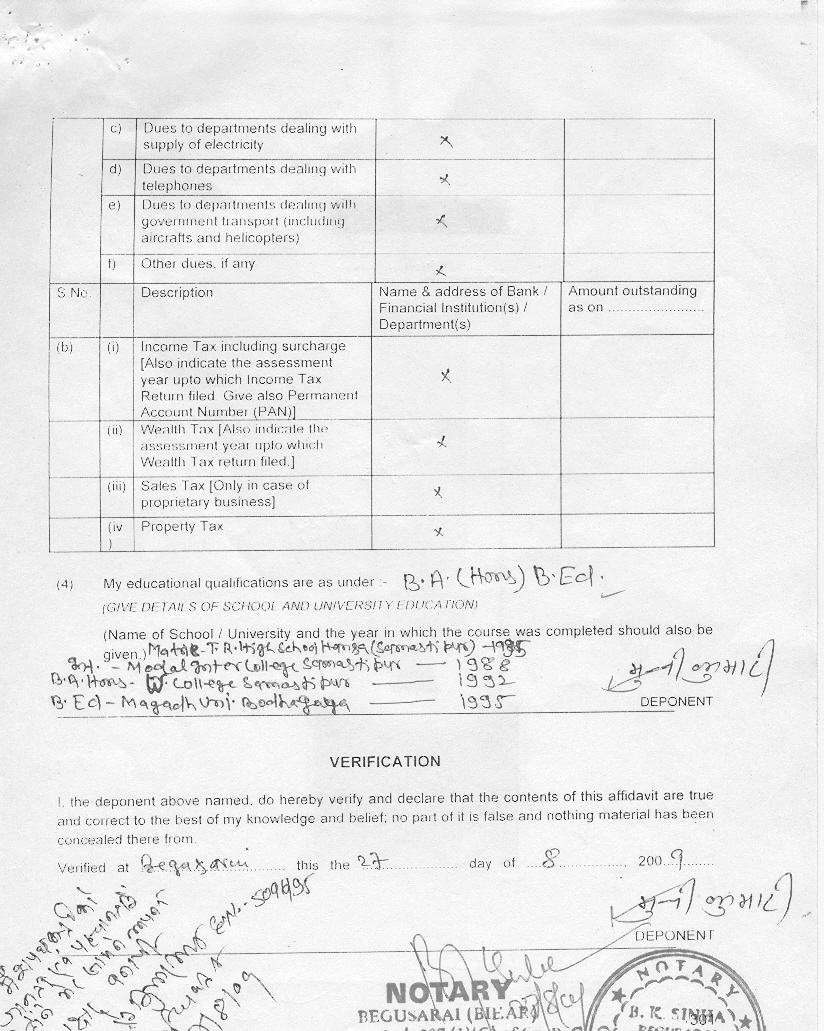 c) Dues to departments dealing with supply of electricity x
d) Dues to departments dealing with telephones x
e) Dues to departments dealing with government transport (including aircrafts and helicopters) x
f) Other dues, if any x
S.No. Description Name & address of Bank / Financial Institution(s) / Department(s) Amount outstanding as on ........................
(b) (i) Income Tax including surcharge [Also indicate the assessment year upto which Income Tax Return filed. Give also Permanent Account Number (PAN)] x
(ii) Wealth Tax [Also indicate the assessment year upto which Wealth Tax return filed.] x
(iii) Sales Tax [Only in case of proprietary business] x
(iv) Property Tax x
(4) My educational qualifications are as under :- B.A. (Hons) B.Ed.
(GIVE DETAILS OF SCHOOL AND UNIVERSITY EDUCATION)
(Name of School / University and the year in which the course was completed should also be
given.) Matric - T.R. High School (Samastipur) - 1985
Int. - Modal Inter College Samastipur — 1988
B.A. Hons - W. College Samastipur — 1992
B.Ed - Magadh Uni. Bodhagaya — 1995
मुन्नी कुमारी
DEPONENT
VERIFICATION
I, the deponent above named, do hereby verify and declare that the contents of this affidavit are true
and correct to the best of my knowledge and belief; no part of it is false and nothing material has been
concealed there from.
Verified at Begusarai this the 27 day of 8, 2009
मुन्नी कुमारी
DEPONENT
NOTARY
BEGUSARAI (BIHAR)
NOTARY
B. K. SINHA